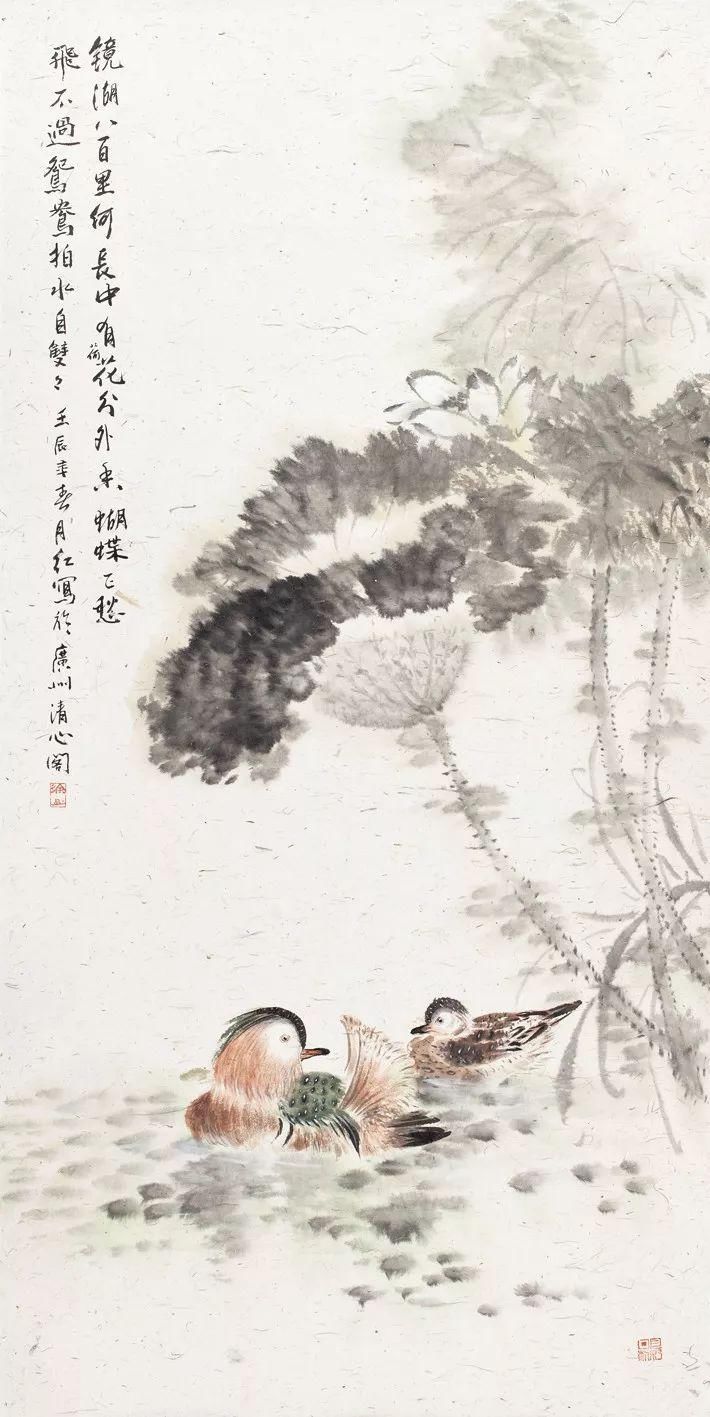 镜湖八百里何長中有荷花分外香蝴蝶已愁
飛不過鴛鴦拍水自雙々壬辰年春月红寫於廣州清心阁